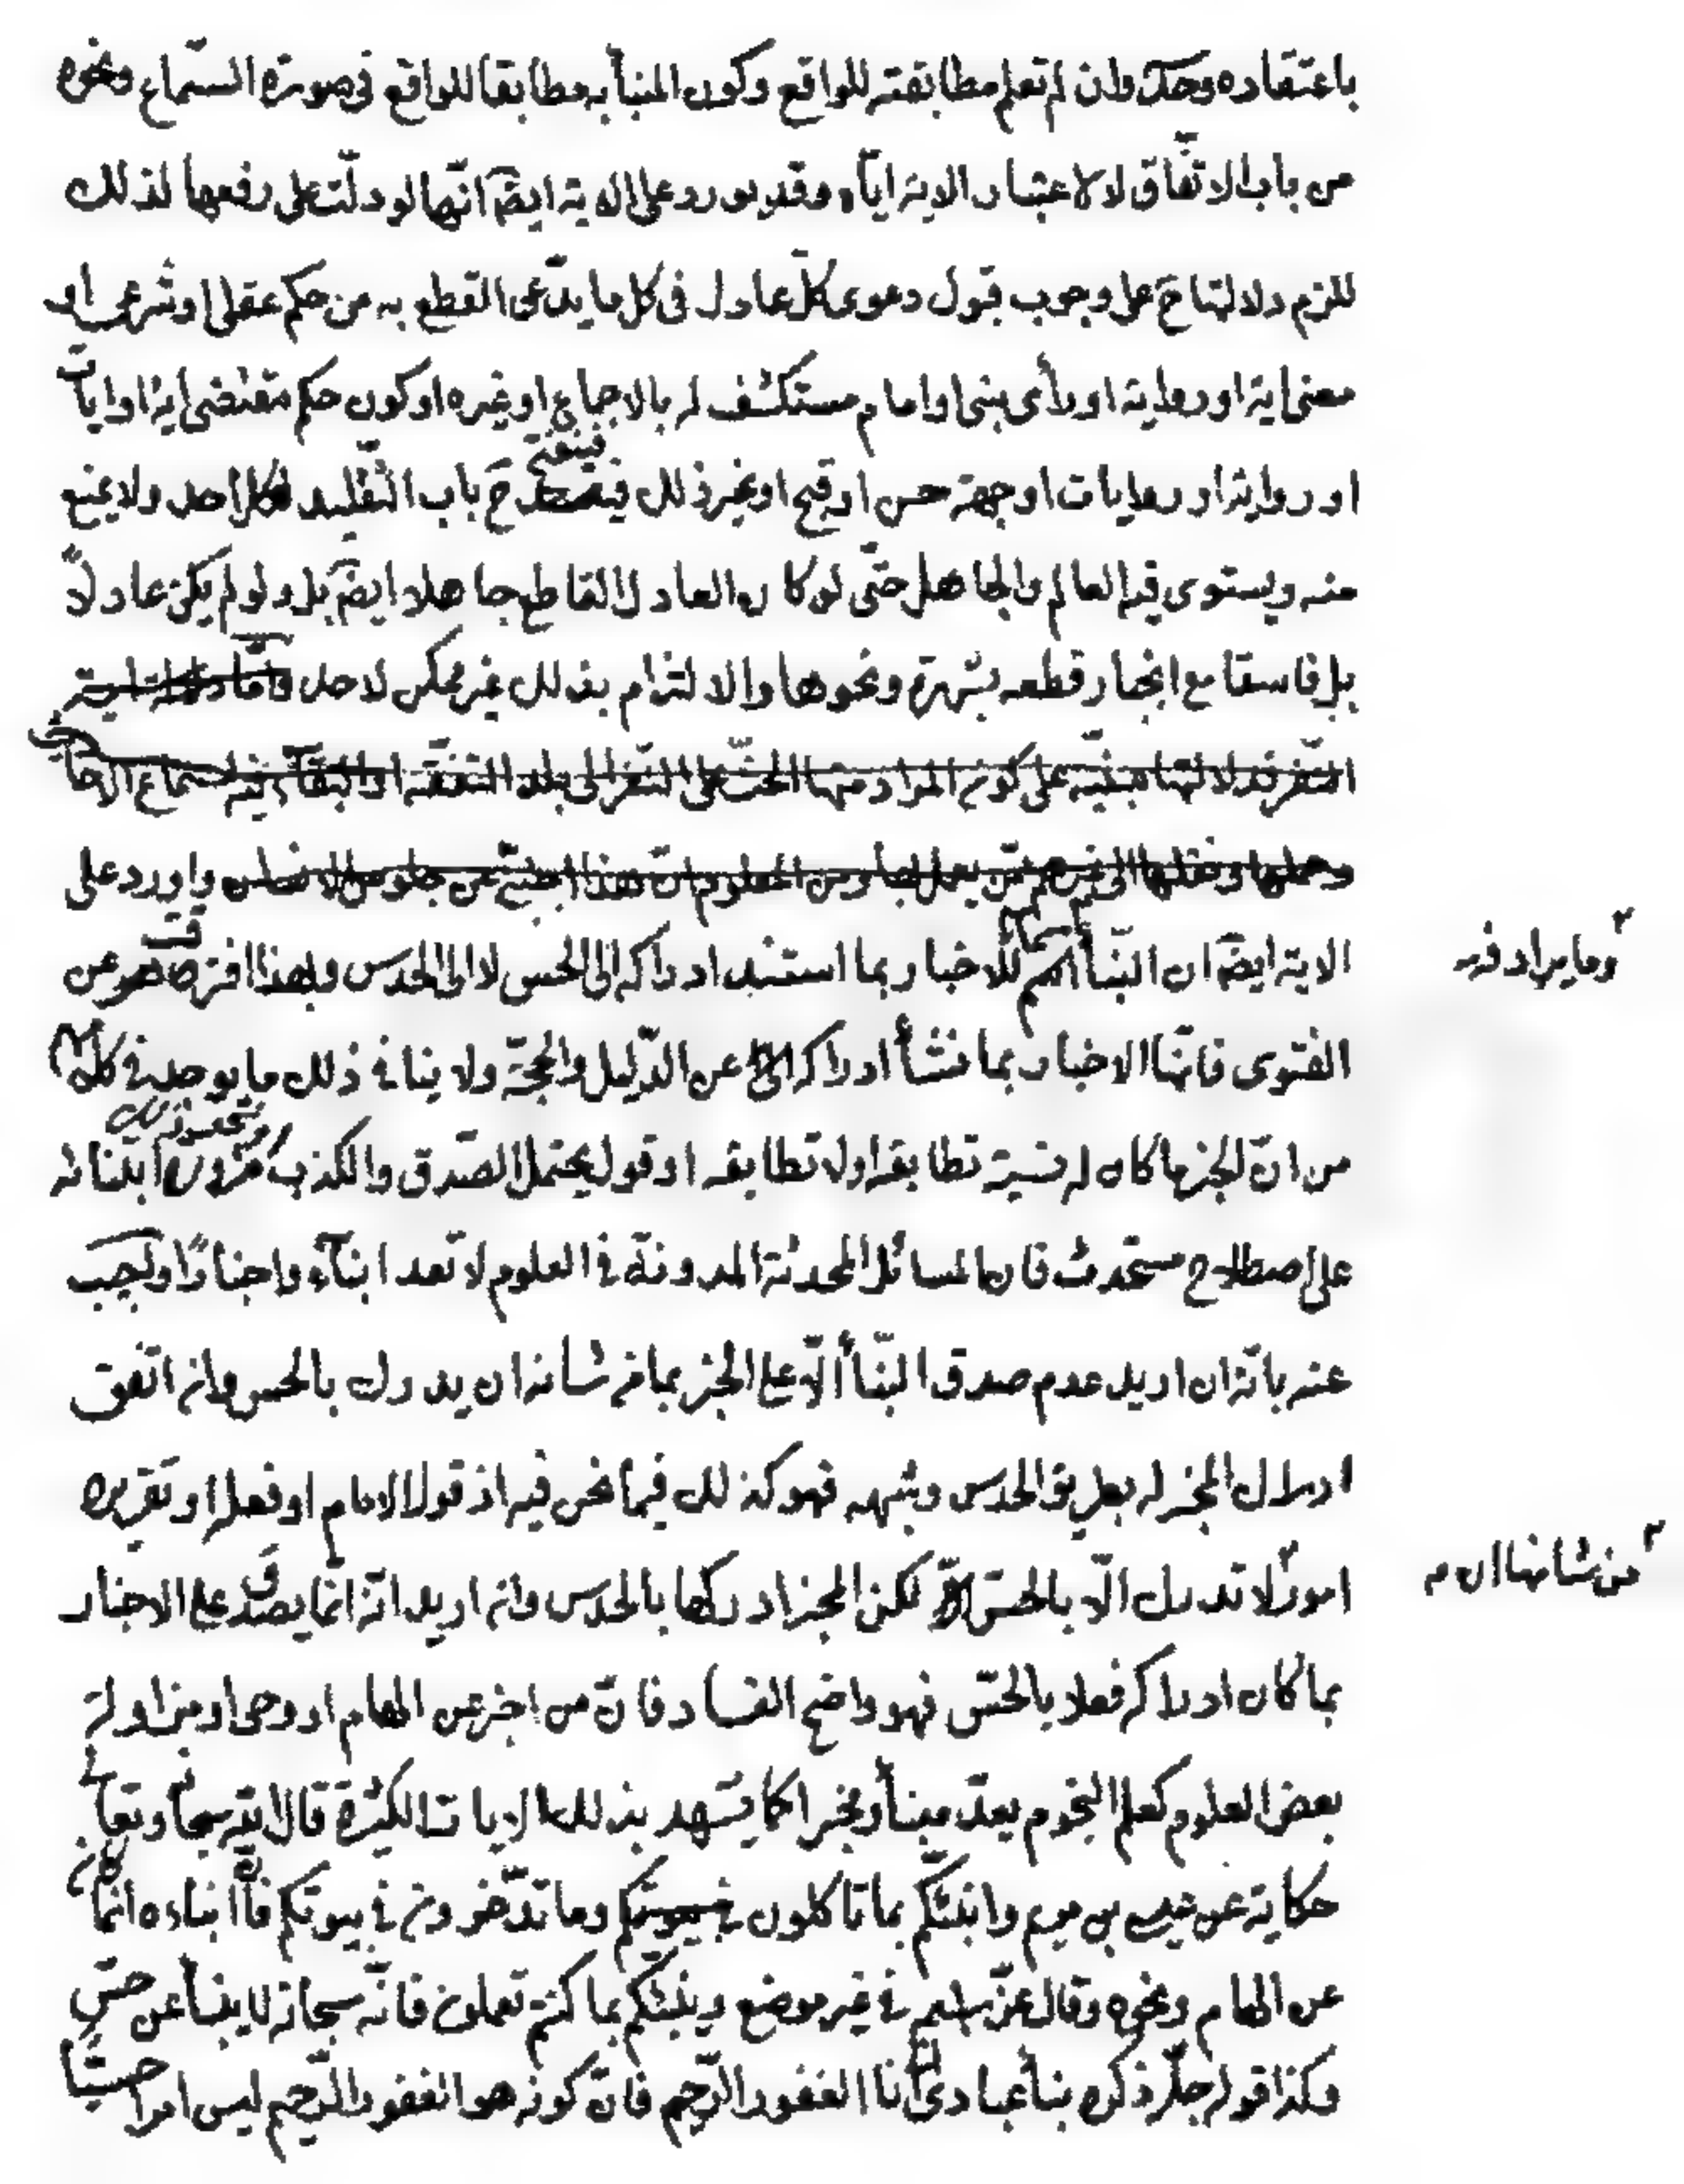 باعتقاده وحده وان لم تعلم مطابقته للواقع وكون المنبأ به مطابقا للواقع في صورة السّماع ونحوه
من باب الاتّفاق لا لاعتبار الاية ايّاه وقد يورد على الاية ايضَ انّها لو دلّت على رفعها لذلك
للزم دلالتها حَ على وجوب قبول دعوى كلّ عادل في كل ما يدّعى القطع به من حكم عقلى او شرعى او
معنى اية او رواية او راى نبى او امام مستكشف له بالاجماع او غيره او كون حكم مقتضى اية او ايات
او رواية او روايات او جهة حسن او قبح او غير ذلك فينفتح حَ باب التّقليد لكل احد ولا يمنع
منه ويستوى فيه العالم والجاهل حتّى لو كان العادل القاطع جاهلا ايضَ بل ولو لم يكن عادلاً
بل فاسقا مع انجبار قطعه بشهرة ونحوها والالتزام بذلك غير ممكن لاحد وامّا دلالة اية
النّفر فدلالتها مبنيّة على كون المراد منها الحثّ على النّفر الى بلد التفقّه او البقآء فيه لسماع الاخبار
وحملها ونقلها الى غيرهم ممّن يعمل بها ومن المعلوم انّ هذا اجنبىّ عن واورد على
الاية ايضَ ان النّبأ اسم للاخبار بما استند ادراكه الى الحس لا الى الحدس وبهذا افترقت عن
وما يرادفه
الفتوى فانّها الاخبار بما نشأ ادراكه عن الدّليل والحجّة ولا ينافي ذلك ما يوجد في كلامهم
من انّ الخبر ما كان له نسبة تطابقه اولا تطابقه او قول يحتمل الصّدق والكذب ونحو ذلك ضرورة ابتنائه
على اصطلاح مستحدث فان المسائل المحدثة المدونة في العلوم لا تعد انبآء واخبارًا ويجب
عنه بانّه ان اريد عدم صدق النّبأ الّا على الخبر بما من شانه ان يدرك بالحس وان اتفق
ادراك المخبر له بطريق الحدس وشبهه فهو كذلك فيما نحن فيه اذ قول الامام او فعله او تقريره
امور لا تدرك الّا بالحسّ لكن المخبر ادركها بالحدس وان اريد انّه انّما يصدق على الاخبار
من شانها ان
بما كان ادراكه فعلا بالحسّ فهو واضح الفساد فانّ من اخبر عن الهام او وحى او مزاولة
بعض العلوم كعلم النّجوم يعدّ منبأ ومخبرا كما يشهد بذلك الايات الكثيرة قال الله سبحانه وتعالى
حكاية عن عيسى بن مريم وانبّئكم بما تاكلون وما تدّخرون في بيوتكم فانّ انباءه انّما كان
عن الهام ونحوه وقال عزّ اسمه في غير موضع وينبّئكم بما كنتم تعملون فانّه سبحانه لا ينبأ عن حسّ
وكذا قوله جلّ ذكره نبأ عبادى انّى انا الغفور الرّحيم فانّ كونه هو الغفور الرّحيم ليس امرا حسّيّا